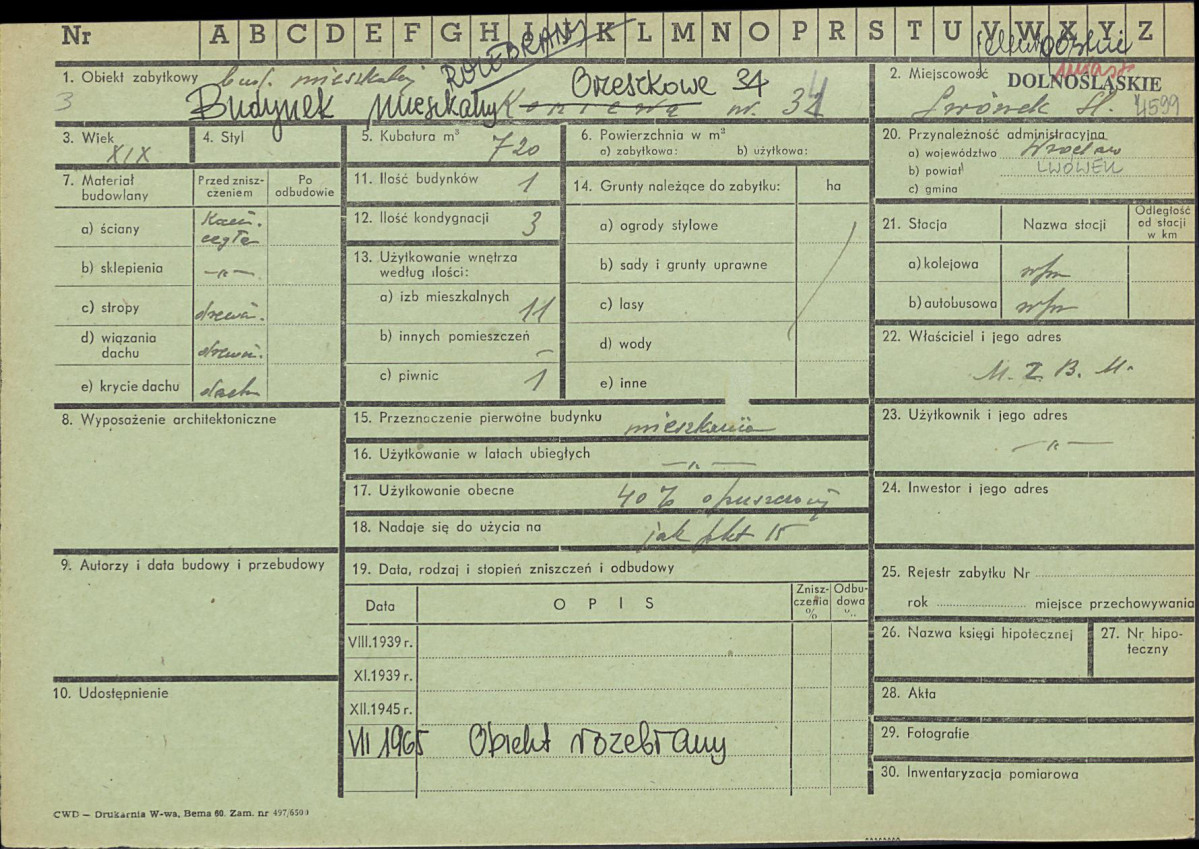 Nr A B C D E F G H I J K L M N O P R S T U V W X Y Z
ROZEBRANY
1. Obiekt zabytkowy bud. mieszkalny
3
Budynek mieszkalny Orzeszkowej 34
nr. 34
2. Miejscowość
DOLNOŚLĄSKIE
Lwówek Śl. 4599
3. Wiek XIX
4. Styl
5. Kubatura m³ 720
6. Powierzchnia w m²
a) zabytkowa: b) użytkowa:
7. Materiał budowlany
Przed zniszczeniem
Po odbudowie
a) ściany Kam. cegła
b) sklepienia —„—
c) stropy drewn.
d) wiązania dachu drewn.
e) krycie dachu dach.
8. Wyposażenie architektoniczne
9. Autorzy i data budowy i przebudowy
10. Udostępnienie
11. Ilość budynków 1
12. Ilość kondygnacji 3
13. Użytkowanie wnętrza według ilości:
a) izb mieszkalnych 11
b) innych pomieszczeń –
c) piwnic 1
14. Grunty należące do zabytku: ha
a) ogrody stylowe
b) sady i grunty uprawne
c) lasy
d) wody
e) inne
15. Przeznaczenie pierwotne budynku mieszkania
16. Użytkowanie w latach ubiegłych —„—
17. Użytkowanie obecne 40% opuszczony
18. Nadaje się do użycia na jak pkt 15
19. Data, rodzaj i stopień zniszczeń i odbudowy
Data
OPIS
Zniszczenia %
Odbudowa %
VIII.1939 r.
XI.1939 r.
XII.1945 r.
VII 1965 Obiekt rozebrany
20. Przynależność administracyjna
a) województwo Wrocław
b) powiat LWÓWEK
c) gmina
21. Stacja
Nazwa stacji
Odległość od stacji w km
a) kolejowa
b) autobusowa
22. Właściciel i jego adres
M. Z. B. M.
23. Użytkownik i jego adres
—„—
24. Inwestor i jego adres
25. Rejestr zabytku Nr
rok miejsce przechowywania
26. Nazwa księgi hipotecznej
27. Nr hipoteczny
28. Akta
29. Fotografie
30. Inwentaryzacja pomiarowa
CWD — Drukarnia W-wa, Bema 60. Zam. nr 497/6500